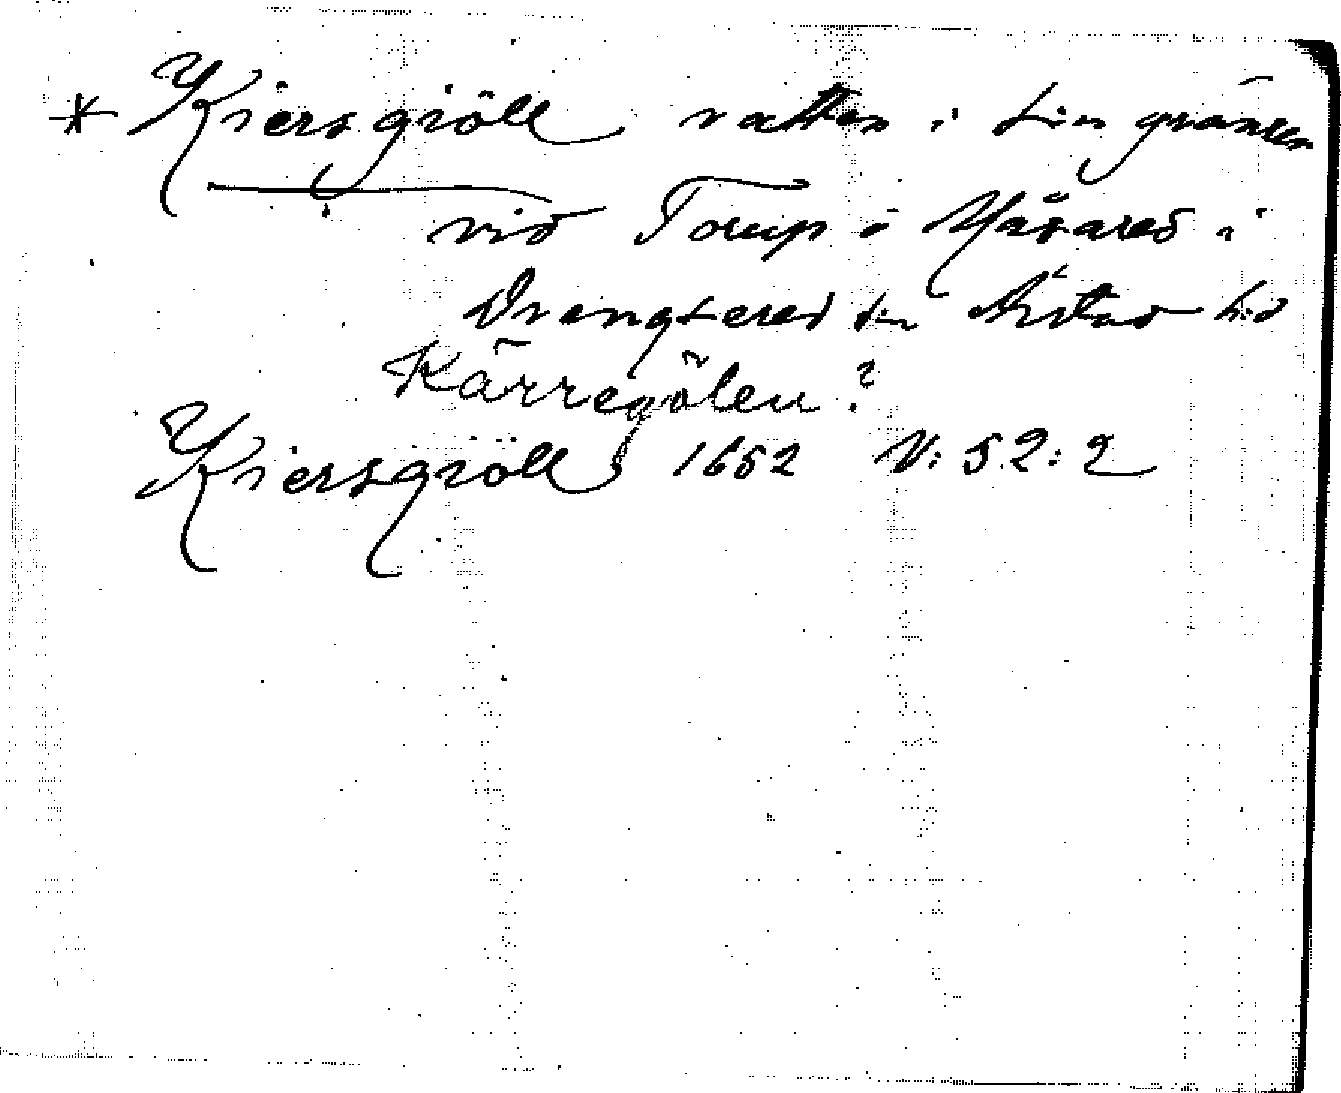 * Kiersgiöll vatten i sn gränsen
vid Torup i Yäsared i
Drengsered sn Årstad hd
Kärregölen?
Kiersgiöll 1652 V: 52: 2